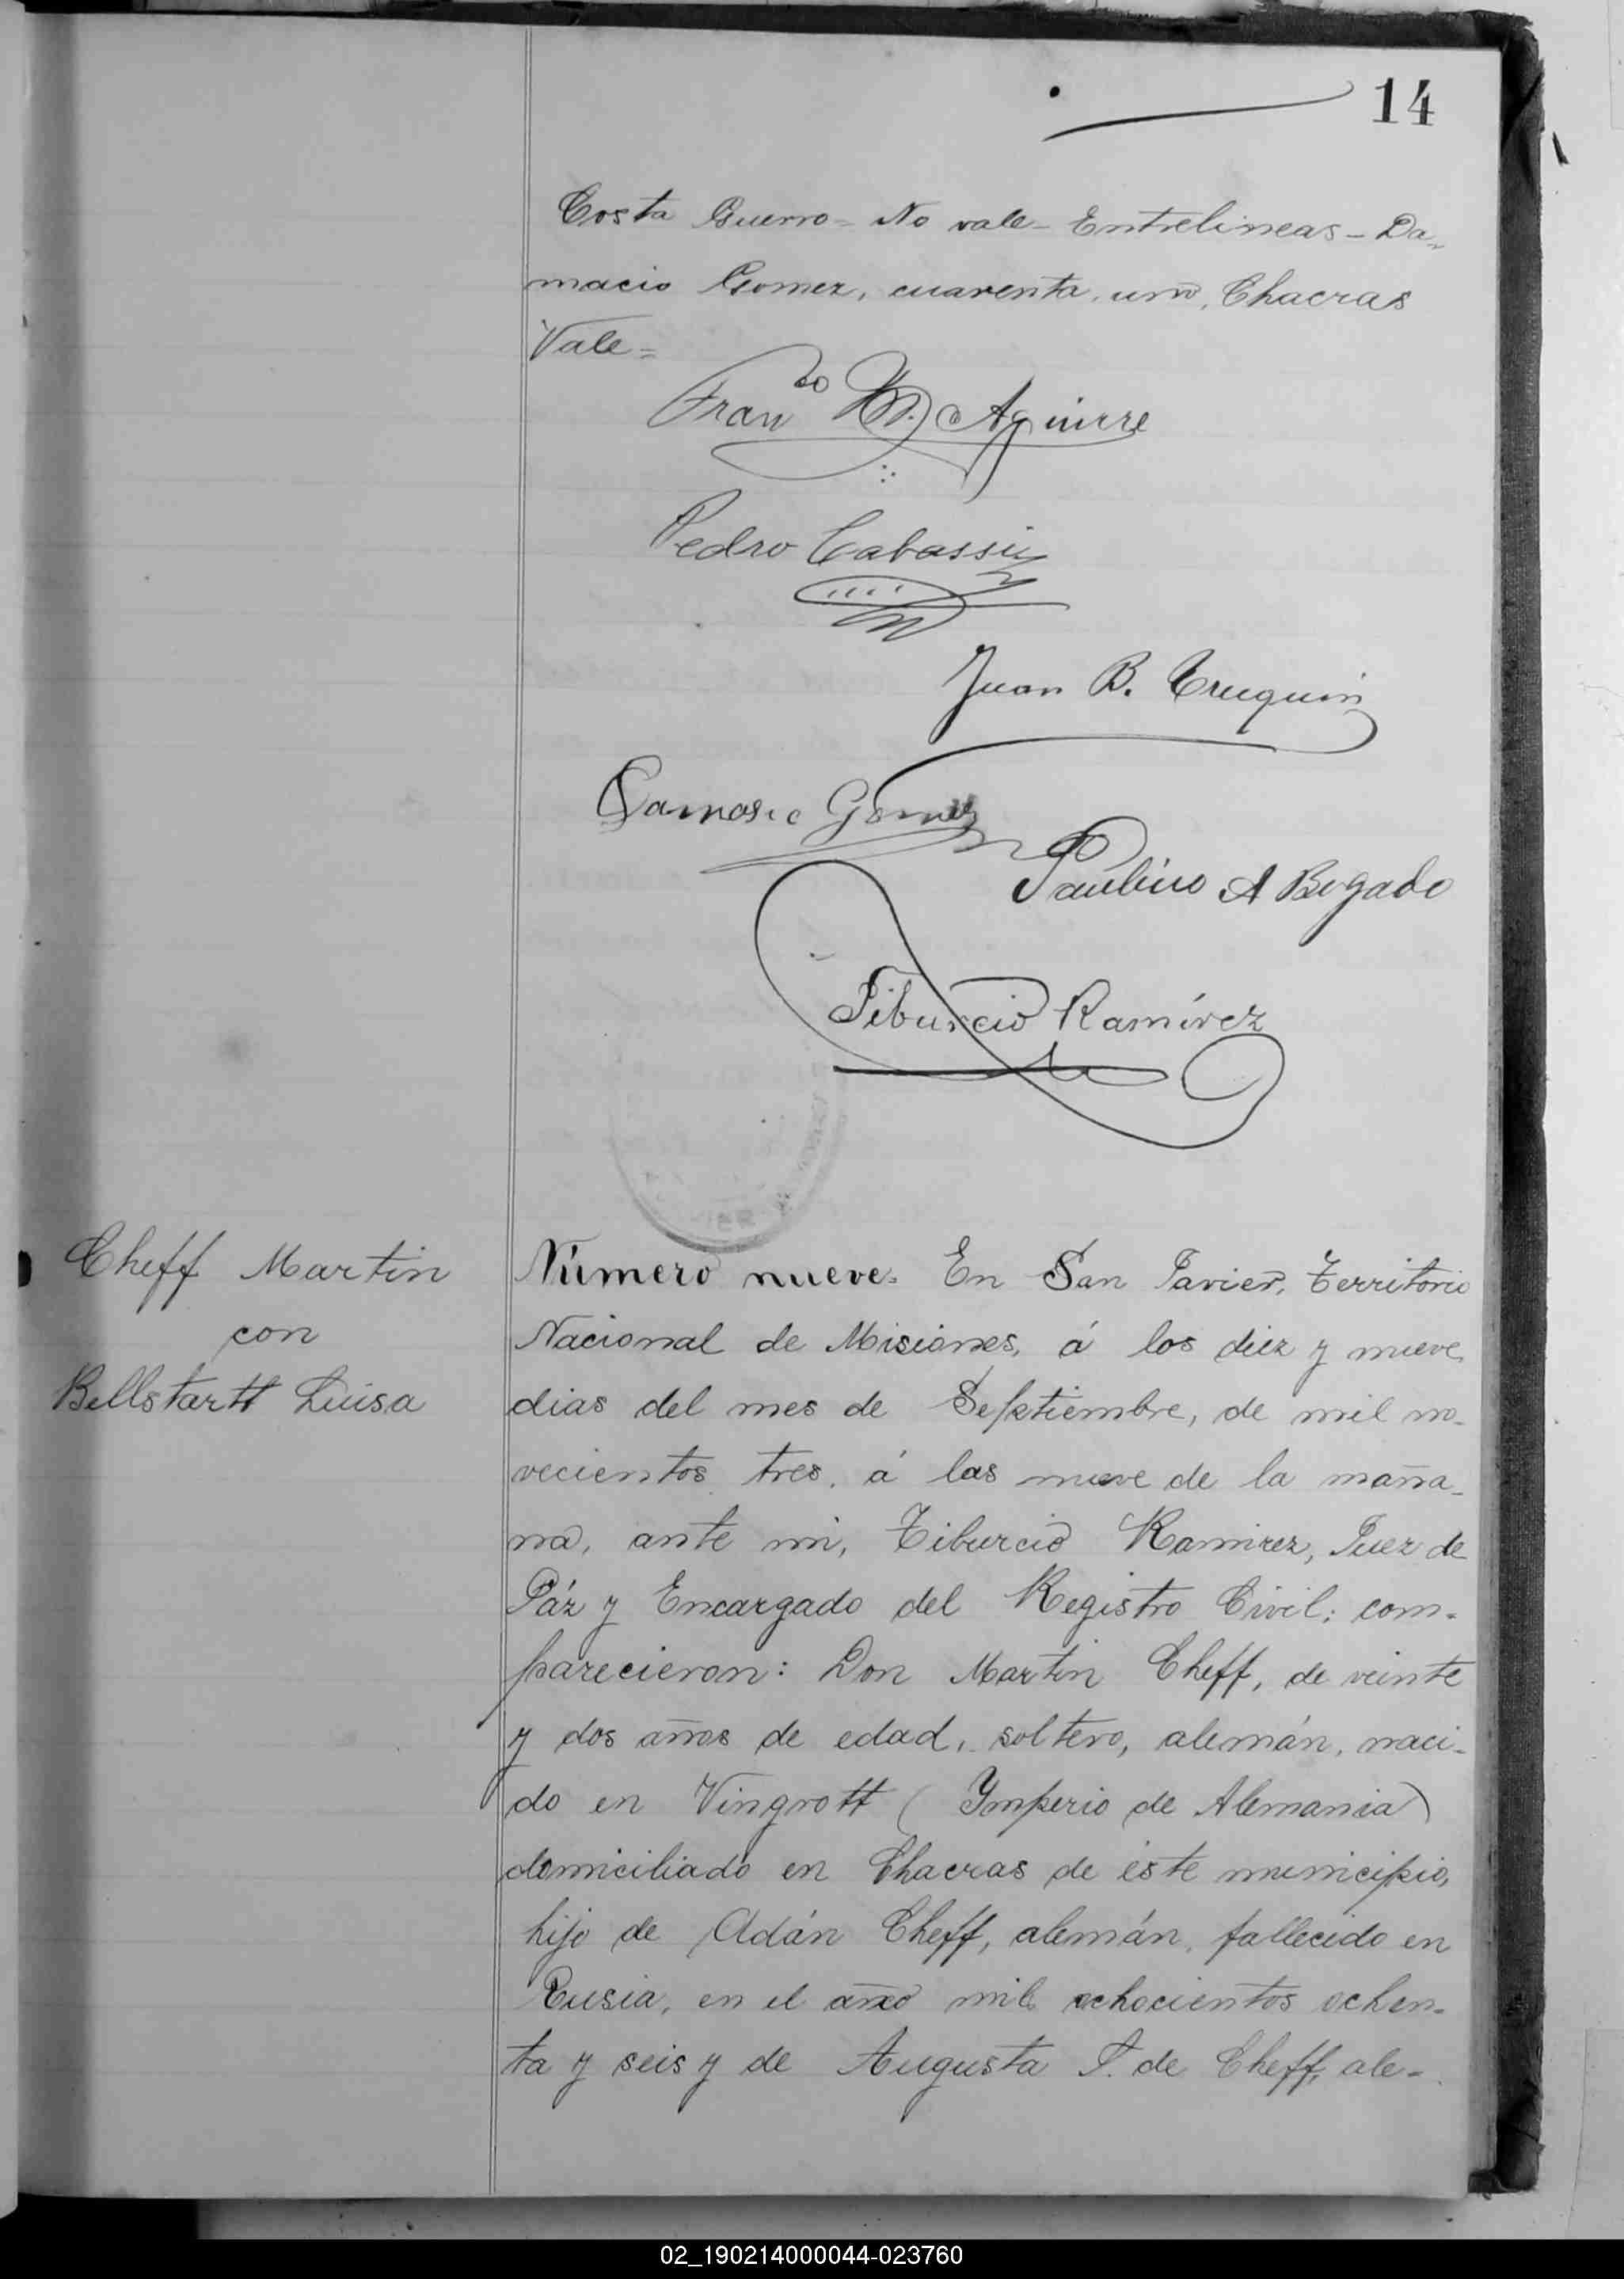 14
Costa Guerro = No vale - Entrelineas - Da-
macio Gomez, cuarenta, uno, Chacras
Vale =
Fran^do M. Aguirre
Pedro Cabassi
Juan B. Truquin
Damasio Gomez
Paulino A Bogado
Tiburcio Ramírez
Cheff Martin
con
Bellstartt Luisa
Número nueve. En San Javier, Territorio
Nacional de Misiones, á los diez y nueve
dias del mes de Septiembre, de mil no-
vecientos tres, á las nueve de la maña-
na, ante mi, Tiburcio Ramirez, Juez de
Páz y Encargado del Registro Civil; com-
parecieron: Don Martin Cheff, de veinte
y dos años de edad, soltero, alemán, naci-
do en Vingrott (Ymperio de Alemania)
domiciliado en Chacras de éste municipio,
hijo de Adán Cheff, alemán, fallecido en
Rusia, en el año mil ochocientos ochen-
ta y seis y de Augusta P. de Cheff, ale-
02_190214000044-023760